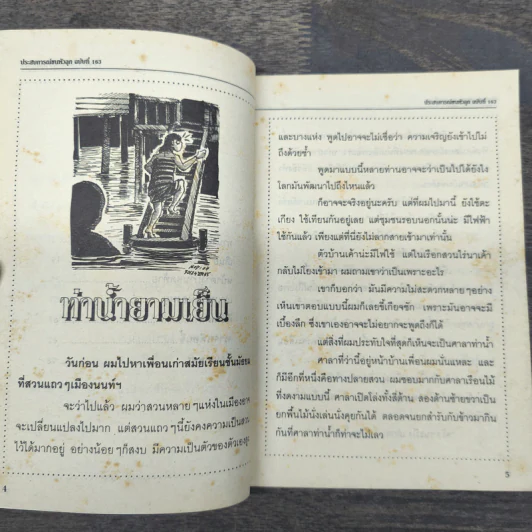 ประสบการณ์ขนหัวลุก ฉบับที่ 163
ท่าน้ำยามเย็น
วันก่อน ผมไปหาเพื่อนเก่าสมัยเรียนชั้นมัธยม
ที่สวนแถวๆเมืองนนท์ฯ
จะว่าไปแล้ว ผมว่าสวนหลายๆแห่งในเมืองอาจ
จะเปลี่ยนแปลงไปมาก แต่สวนแถวๆนี้ยังคงความเป็นสวน
ไว้ได้มากอยู่ อย่างน้อยๆก็สงบ มีความเป็นตัวของตัวเองสูง
4
ประสบการณ์ขนหัวลุก ฉบับที่ 163
และบางแห่ง พูดไปอาจจะไม่เชื่อว่า ความเจริญยังเข้าไปไม่
ถึงด้วยซ้ำ
พูดมาแบบนี้หลายท่านอาจจะว่าเป็นไปได้ยังไง
โลกมันพัฒนาไปถึงไหนแล้ว
ก็อาจจะจริงอยู่นะครับ แต่ที่ผมไปมานี้ ยังใช้ตะ
เกียง ใช้เทียนกันอยู่เลย แต่ชุมชนรอบนอกนั้นน่ะ มีไฟฟ้า
ใช้กันแล้ว เพียงแต่ที่นี่ยังไม่ลากสายเข้ามาเท่านั้น
ตัวบ้านเค้าน่ะมีไฟใช้ แต่ในเรือกสวนไร่นาเค้า
กลับไม่โยงเข้ามา ผมถามเขาว่าเป็นเพราะอะไร
เขาก็บอกว่า มันมีความไม่สะดวกหลายๆอย่าง
เห็นเขาตอบแบบนี้ผมก็เลยขี้เกียจซัก เพราะมันอาจจะมี
เบื้องลึก ซึ่งเขาเองอาจจะไม่อยากจะพูดถึงก็ได้
แต่สิ่งที่ผมประทับใจที่สุดก็เห็นจะเป็นศาลาท่าน้ำ
ศาลาที่ว่านี้อยู่หน้าบ้านเพื่อนผมนั่นแหละ และ
ก็มีอีกที่หนึ่งคือทางปลายสวน ผมชอบมากกับศาลาเรือนไม้
ที่งดงามแบบนี้ ศาลาเปิดโล่งทั้งสี่ด้าน สองด้านซ้ายขวาเป็น
ยกพื้นไม้นั่งเล่นนั่งคุยกันได้ ตลอดจนยกสำรับกับข้าวมากิน
กันที่ศาลาท่าน้ำก็ทำจะไม่เลว
5